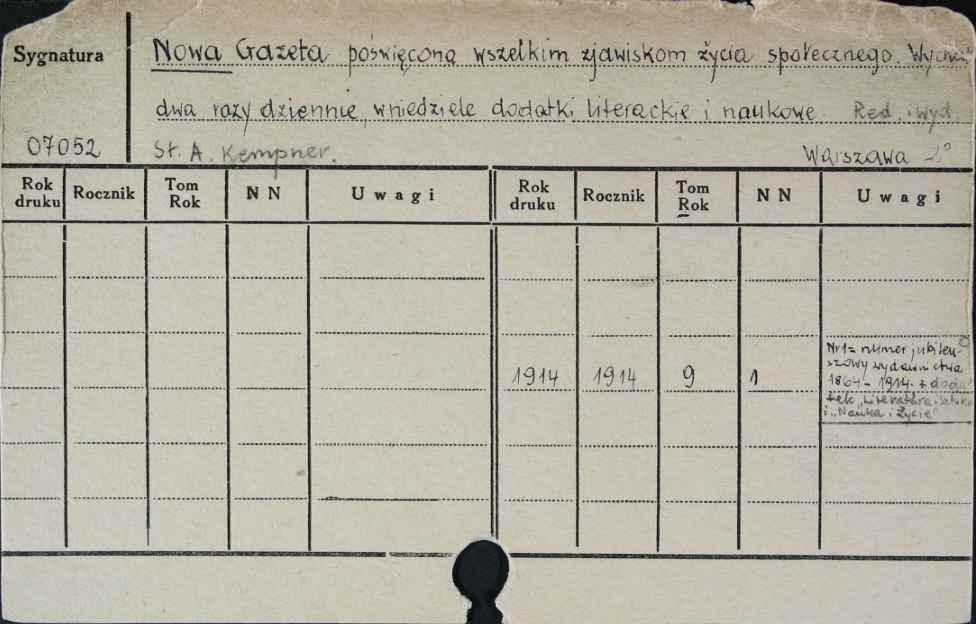 Sygnatura
Nowa Gazeta poświęcona wszelkim zjawiskom życia społecznego.
dwa razy dziennie, w niedziele dodatki literackie i naukowe. Red. i wyd.
07052
St. A. Kempner.
Warszawa 2°
Rok druku Rocznik Tom Rok N N Uwagi Rok druku Rocznik Tom Rok N N Uwagi
1914 1914 9 1
Nr 1 = numer jubileu-
szowy wydawnictwa
1864 - 1914 + doda
tek „Literatura i Sztuka
i „Nauka i Życie"